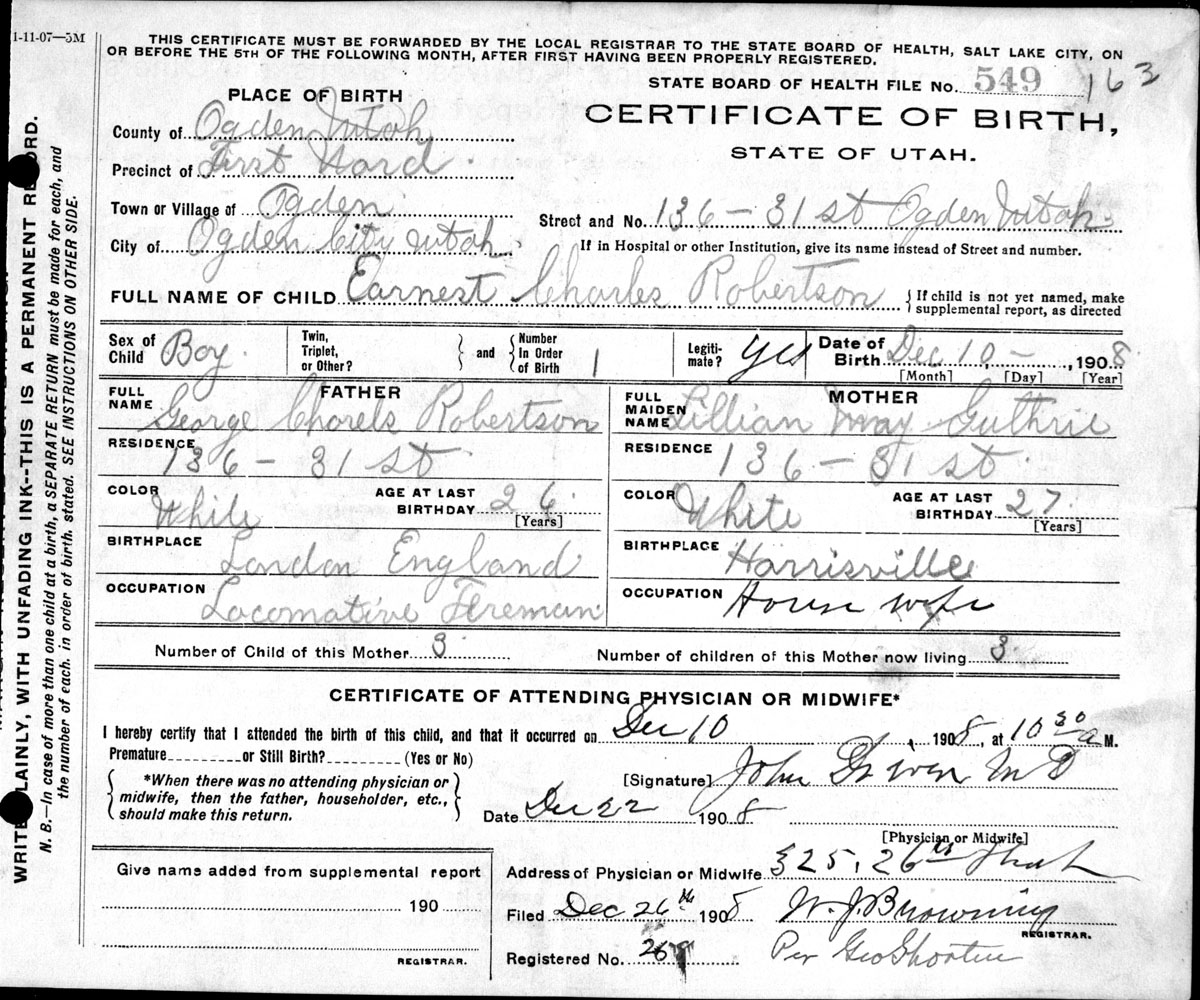 1-11-07—5M
THIS CERTIFICATE MUST BE FORWARDED BY THE LOCAL REGISTRAR TO THE STATE BOARD OF HEALTH, SALT LAKE CITY, ON
OR BEFORE THE 5TH OF THE FOLLOWING MONTH, AFTER FIRST HAVING BEEN PROPERLY REGISTERED.
STATE BOARD OF HEALTH FILE No. 549 163
PLACE OF BIRTH
CERTIFICATE OF BIRTH,
STATE OF UTAH.
County of Ogden Utah
Precinct of First Ward
Town or Village of Ogden
Street and No. 136 - 31 st Ogden Utah
City of Ogden City Utah
If in Hospital or other Institution, give its name instead of Street and number.
FULL NAME OF CHILD Earnest Charles Robertson
If child is not yet named, make
supplemental report, as directed
Sex of Child Boy
Twin, Triplet, or Other?
and Number In Order of Birth 1
Legiti-mate? yes
Date of Birth Dec 10 -, 1908
[Month] [Day] [Year]
FATHER
FULL NAME George Chorels Robertson
MOTHER
FULL MAIDEN NAME Lillian May Guthrie
RESIDENCE 136 - 31 st
RESIDENCE 136 - 31 st
COLOR White AGE AT LAST BIRTHDAY 26 [Years]
COLOR White AGE AT LAST BIRTHDAY 27 [Years]
BIRTHPLACE London England
BIRTHPLACE Harrisville
OCCUPATION Locomative Fireman
OCCUPATION House wife
Number of Child of this Mother 3
Number of children of this Mother now living 3
CERTIFICATE OF ATTENDING PHYSICIAN OR MIDWIFE*
I hereby certify that I attended the birth of this child, and that it occurred on Dec 10, 1908, at 10 30 a M.
Premature or Still Birth? (Yes or No)
*When there was no attending physician or
midwife, then the father, householder, etc.,
should make this return.
[Signature] John M D
Date Dec 22 1908
[Physician or Midwife]
Give name added from supplemental report
190
REGISTRAR.
Address of Physician or Midwife 325, 26th
Filed Dec 26th 1908 W. J. Browning
REGISTRAR.
Registered No. 269 Per Geo Shorten
WRITE PLAINLY, WITH UNFADING INK--THIS IS A PERMANENT RECORD.
N. B.—In case of more than one child at a birth, a SEPARATE RETURN must be made for each, and
the number of each, in order of birth, stated. SEE INSTRUCTIONS ON OTHER SIDE.